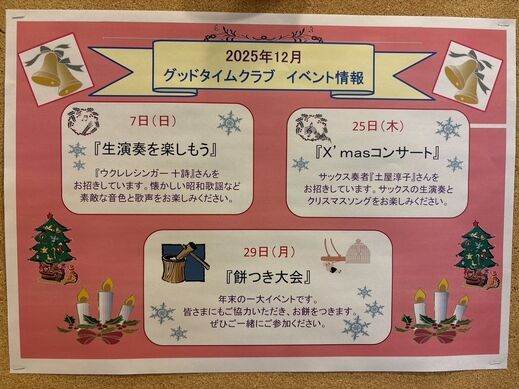 2025年12月
グッドタイムクラブ イベント情報
7日(日)
『生演奏を楽しもう』
『ウクレレシンガー 十詩』さんを
お招きしています。懐かしい昭和歌謡など
素敵な音色と歌声をお楽しみください。
25日(木)
『X’masコンサート』
サックス奏者『土屋淳子』さんを
お招きしています。サックスの生演奏と
クリスマスソングをお楽しみください。
29日(月)
『餅つき大会』
年末の一大イベントです。
皆さまにもご協力いただき、お餅をつきます。
ぜひご一緒にご参加ください。